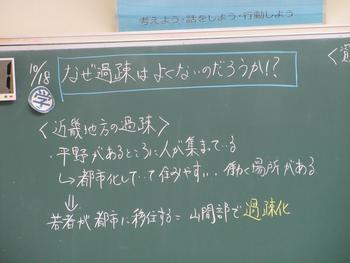 考えよう・話をしよう・行動しよう
10/18
なぜ過疎はよくないのだろうか!?
学
<近畿地方の過疎>
・平野があるところに人が集まっている
↳都市化していて住みやすい、働く場所がある
⇓
若者が都市に移住する=山間部で過疎化